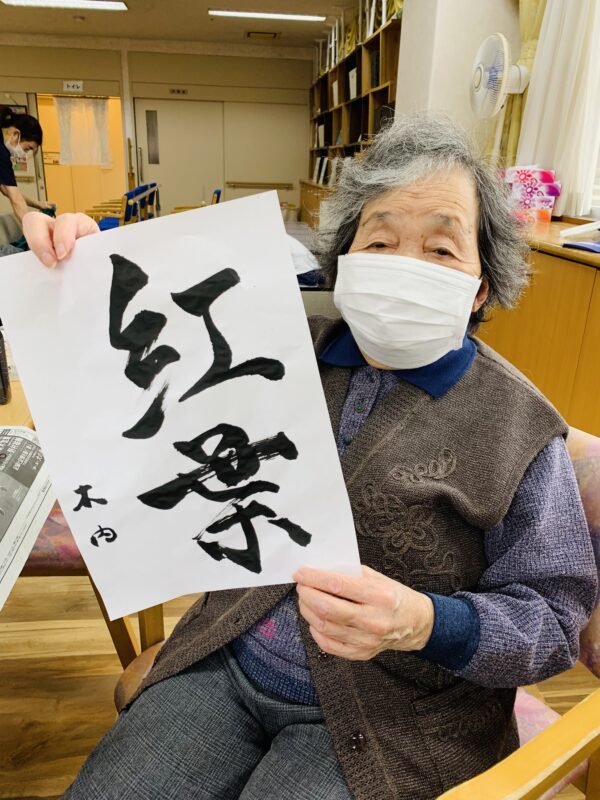 紅葉
木内
トイレ